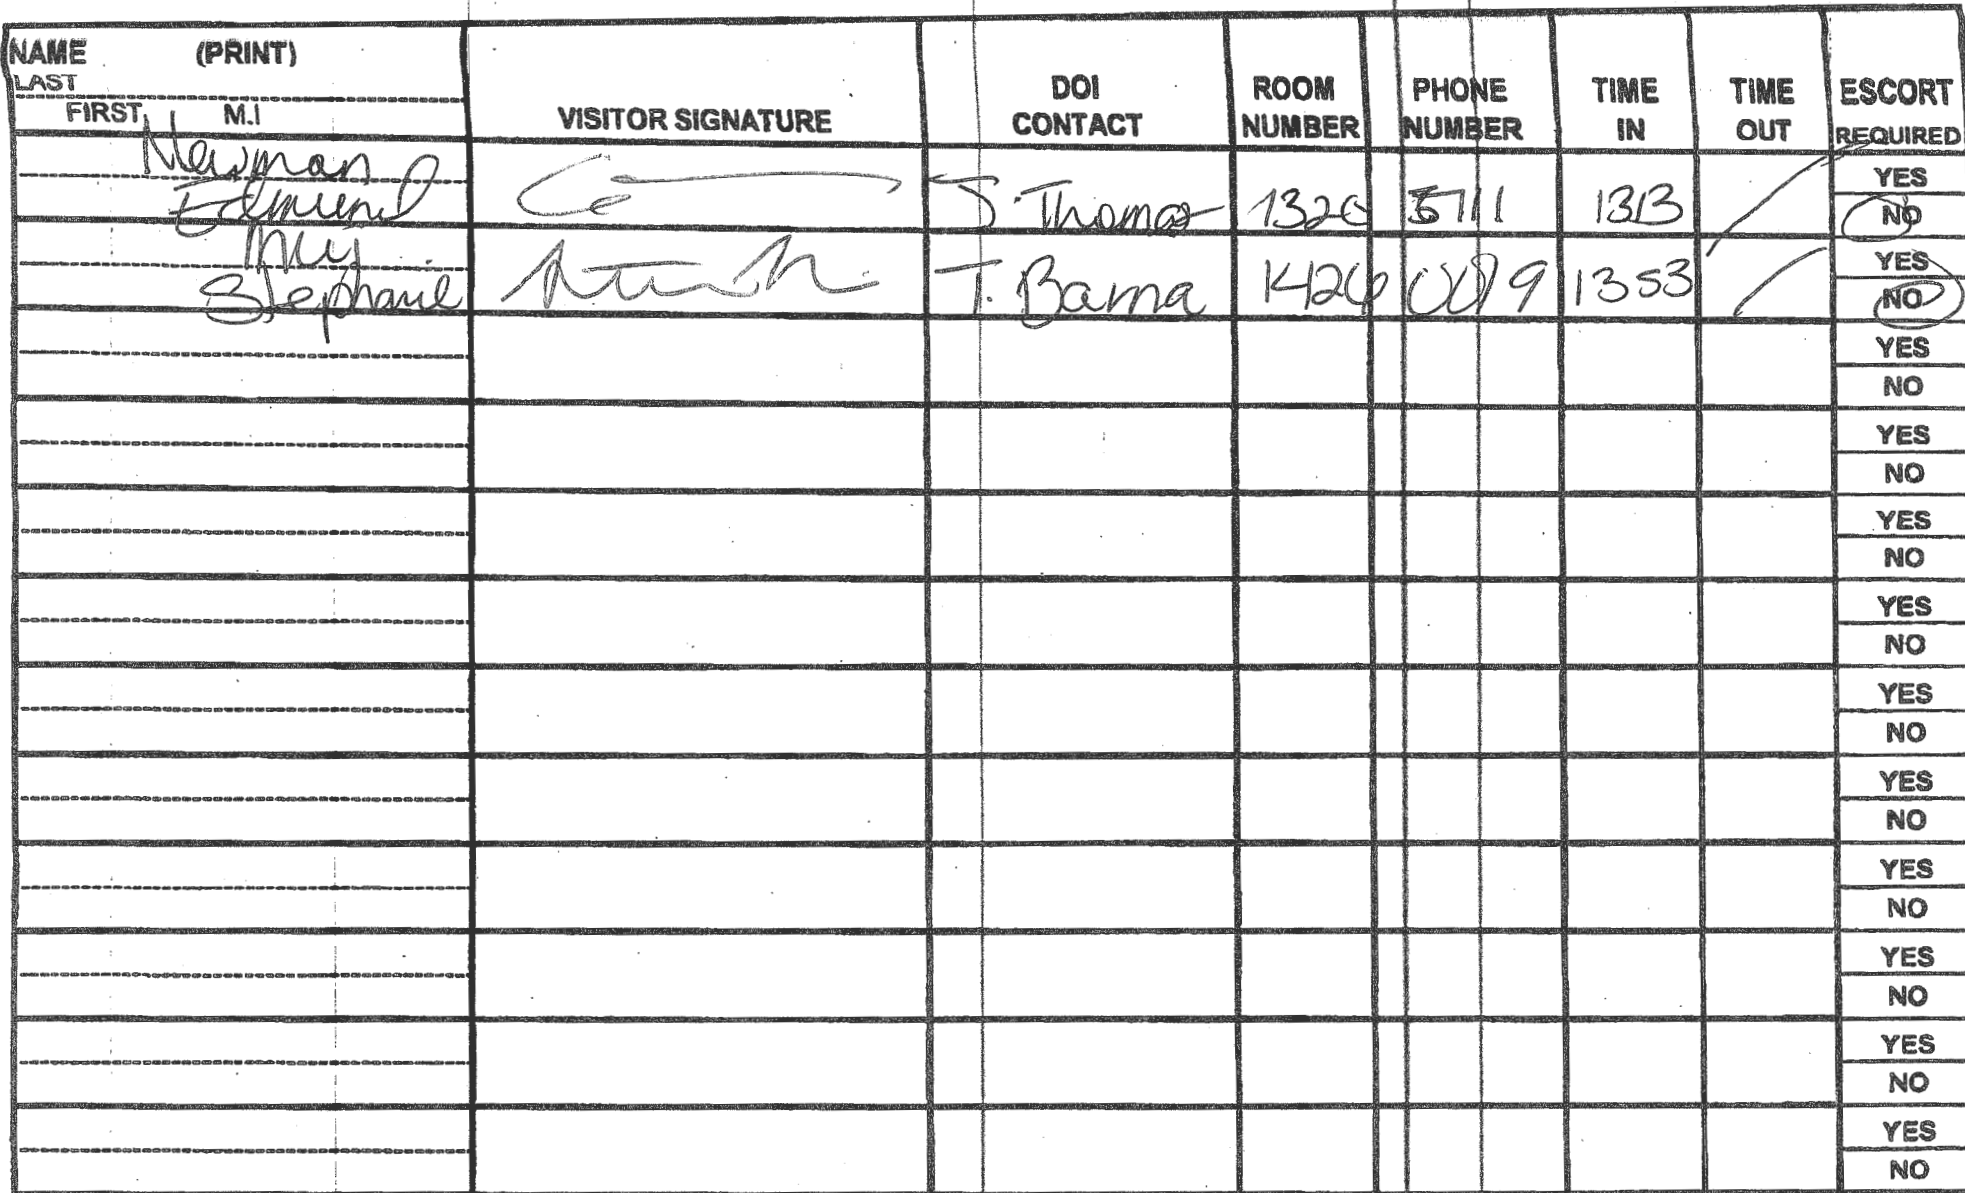 NAME (PRINT)
LAST
FIRST M.I
VISITOR SIGNATURE
DOI CONTACT
ROOM NUMBER
PHONE NUMBER
TIME IN
TIME OUT
ESCORT REQUIRED
Newman
Edmund
J. Thomas 1320 5711 1313
YES
NO
Stephanie
T. Barna 1426 1353
YES
NO
YES
NO
YES
NO
YES
NO
YES
NO
YES
NO
YES
NO
YES
NO
YES
NO
YES
NO
YES
NO